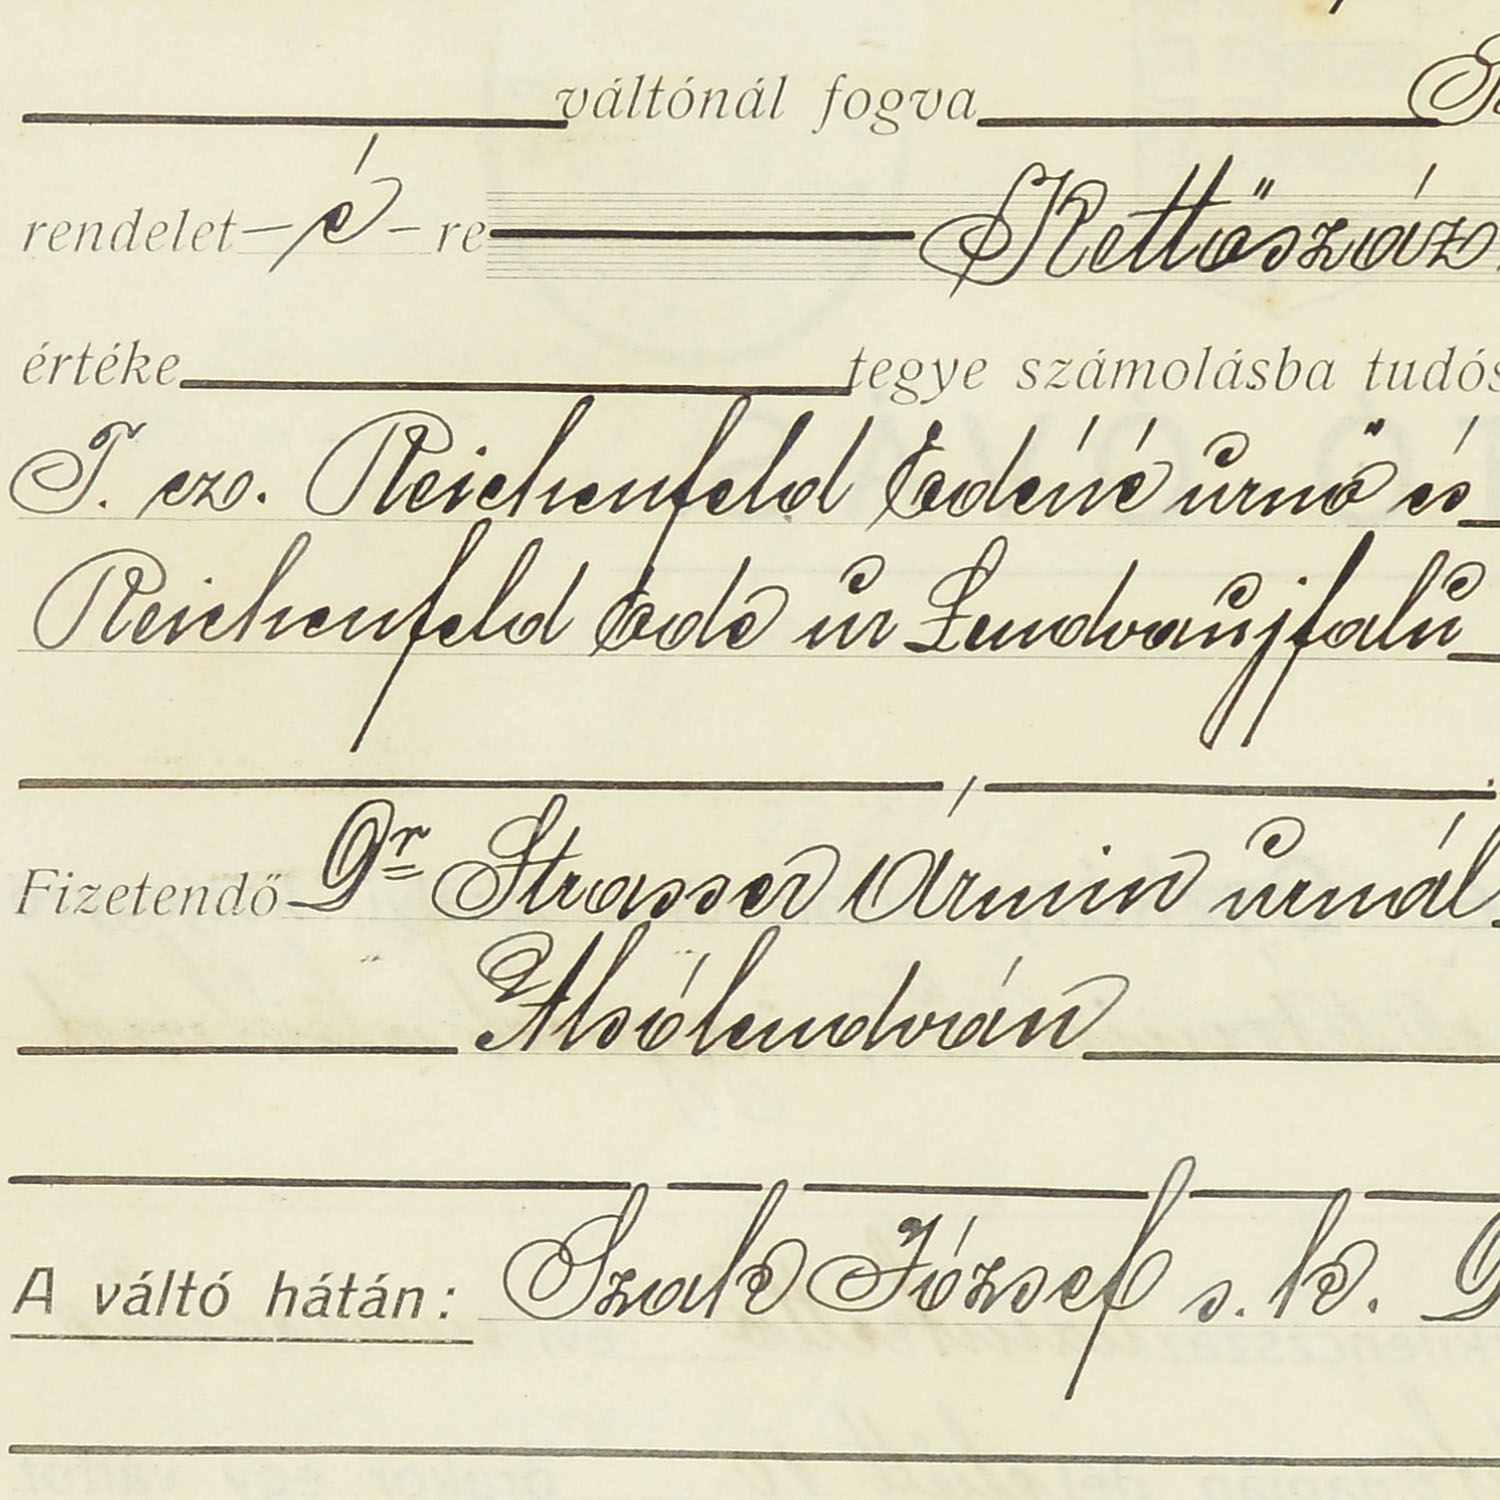 váltónál fogva
rendelet – é – re Kettőszáz
értéke tegye számolásba
T. cz. Reichenfeld Edéné úrnő és
Reichenfeld Ede úr Lendvaujfalu
Fizetendő Dr Strasser Ármin urnál
Alsólendván
A váltó hátán: Szak József s. k.